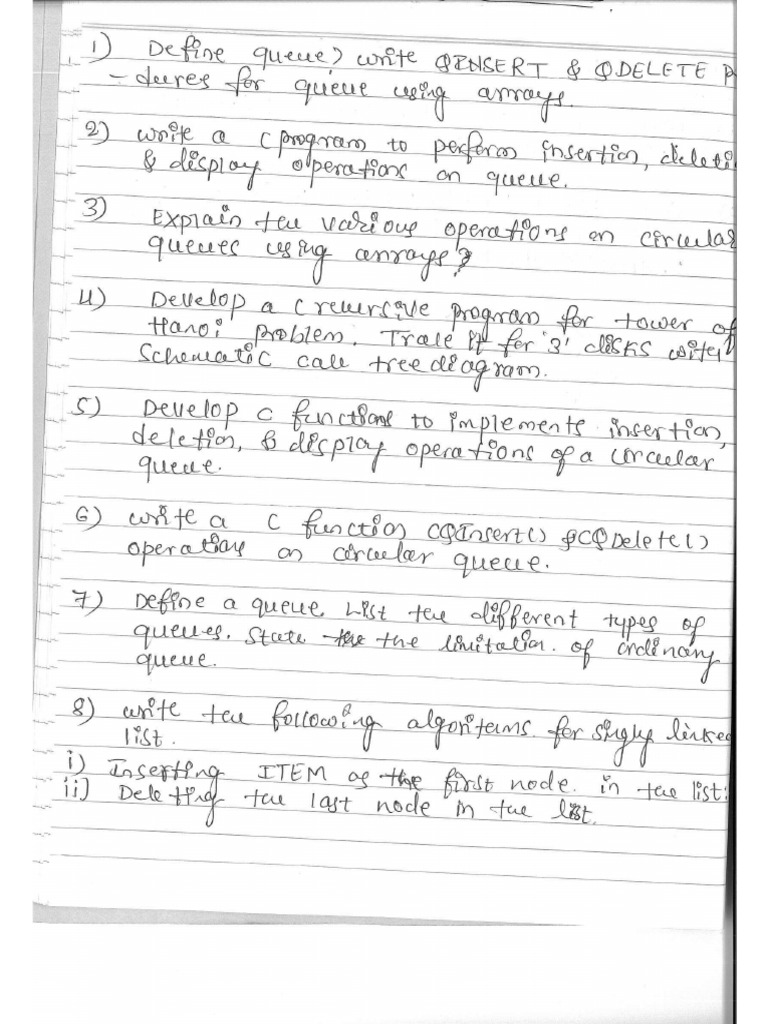 1) Define queue? write QINSERT & QDELETE P
-dures for queue using arrays.
2) write a C program to perform insertion, deleti
& display operations on queue.
3) Explain the various operations on circular
queues using arrays?
4) Develop a C recursive program for tower of
Hanoi problem. Trace it for '3' disks with
Schematic call tree diagram.
5) Develop C functions to implements insertion,
deletion, & display operations of a circular
queue.
6) write a C function CQInsert() & CQDelete()
operations on circular queue.
7) Define a queue. List the different types of
queues. State the the limitation of ordinary
queue.
8) write the following algorithms for singly linked
list.
i) Inserting ITEM as the first node in the list:
ii) Deleting the last node in the list.